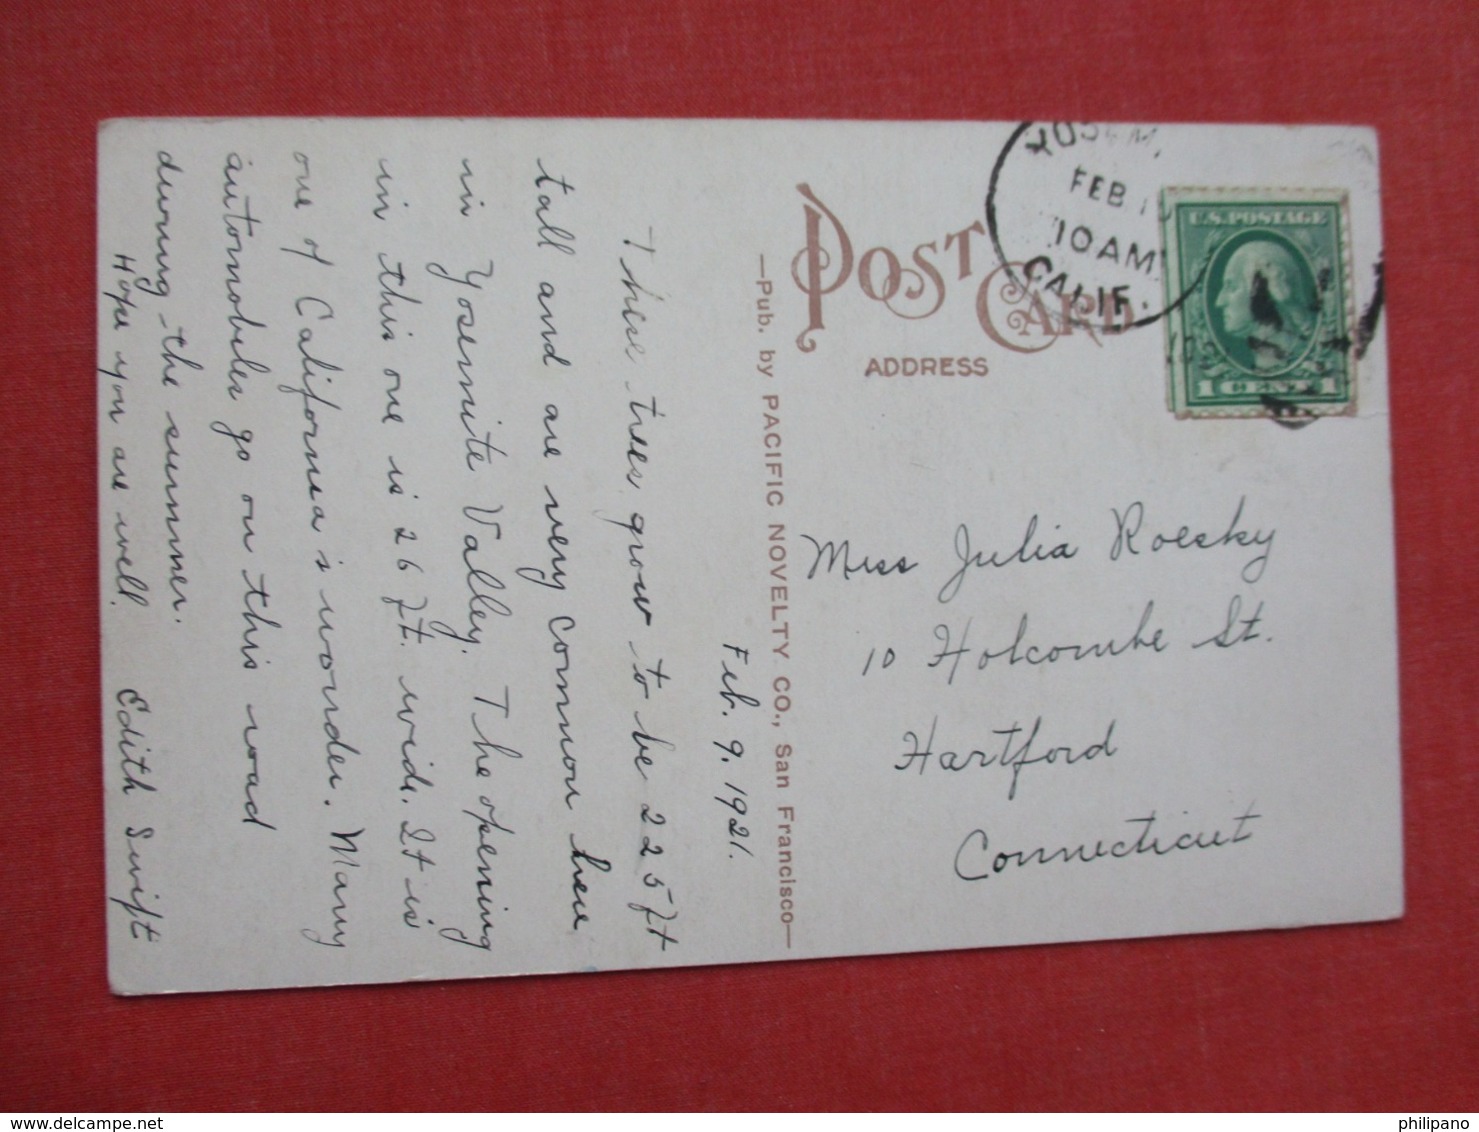 Feb. 9, 1921.
These trees grow to be 225 ft
tall and are very common here
in Yosemite Valley. The opening
in this one is 26 ft. wide. It is
one of California's wonder. Many
automobiles go on this road
during the summer.
Hope you are well. Edith Swift
—Pub. by PACIFIC NOVELTY CO., San Francisco—
POST CARD
ADDRESS
FEB
10 AM
CALIF.
U.S. POSTAGE
1 CENT 1
Miss Julia Roesky
10 Holcombe St.
Hartford
Connecticut
philipano